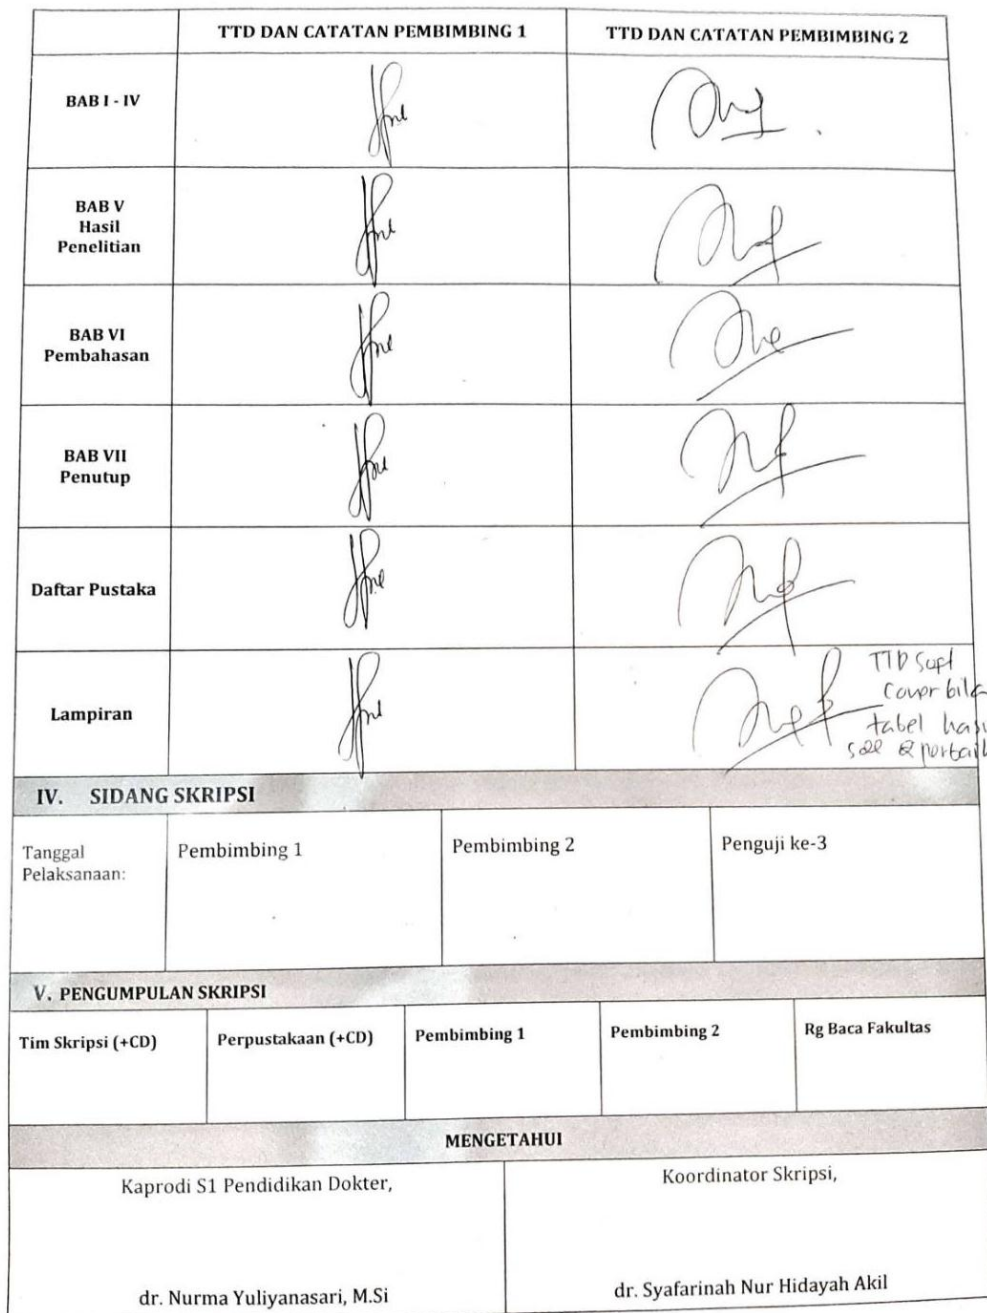 TTD DAN CATATAN PEMBIMBING 1
TTD DAN CATATAN PEMBIMBING 2
BAB I - IV
BAB V
Hasil
Penelitian
BAB VI
Pembahasan
BAB VII
Penutup
Daftar Pustaka
Lampiran
TTD
Cover bila
tabel
IV. SIDANG SKRIPSI
Tanggal
Pelaksanaan:
Pembimbing 1
Pembimbing 2
Penguji ke-3
V. PENGUMPULAN SKRIPSI
Tim Skripsi (+CD)
Perpustakaan (+CD)
Pembimbing 1
Pembimbing 2
Rg Baca Fakultas
MENGETAHUI
Kaprodi S1 Pendidikan Dokter,
Koordinator Skripsi,
dr. Nurma Yuliyanasari, M.Si
dr. Syafarinah Nur Hidayah Akil